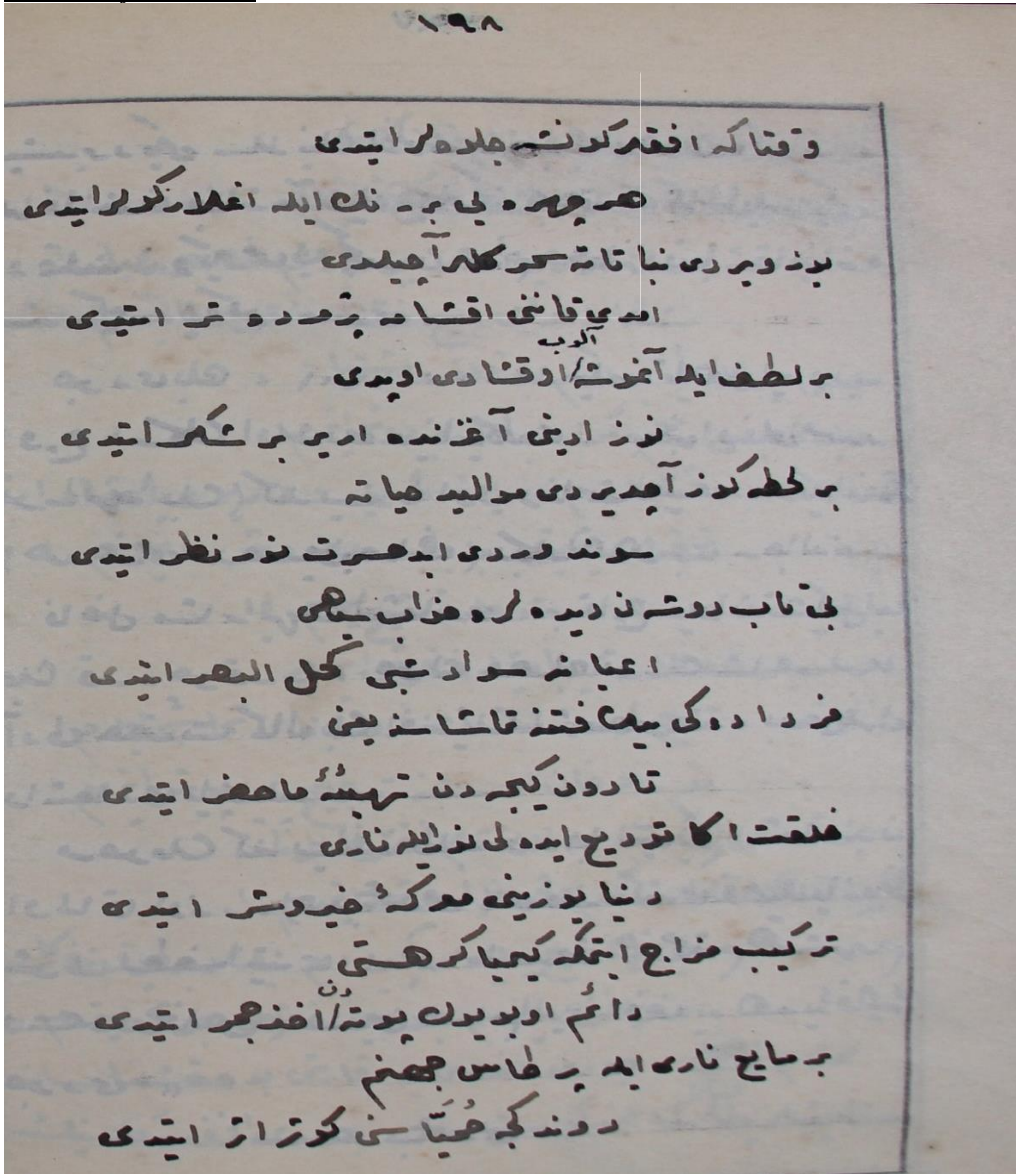 ١٩٨
وقتاكه افقدر كونشه جلوه‌لر ايتدى
هر چهره‌يى بر رنك ايله اغلار كولر ايتدى
يوز ويردى نباتاته سحر كللر آچيلدى
امدى قاننى اقشامه پژمرده تر ايتدى
بر لطف ايله آغوشه آلوب اوقشادى اوپدى
نوز ادينى آغزنده اريير بر شكر ايتدى
بر لحظه كوز آچديردى مواليد حياته
سوندوردى ابد حسرت نور نظر ايتدى
بى تاب دوشن ديده‌لره خواب سياهى
اعيانه سواد شبى كحل البصر ايتدى
فرداده‌كى بيك فتنه تماشاسنه يعنى
تا دون كيجه‌دن تهيئهٔ ماحضر ايتدى
خلقت اكا توديع ايده‌لى نور ايله نارى
دنيا يوزينى معركهٔ خير و شر ايتدى
تركيب مزاج ايتمكه كيمياكر هستى
دائم او بويوك پوته‌دن اخذ جمر ايتدى
بر مايع نارى ايله پر طاس جهنم
دوندكجه حُمَيّاسنى كوتر اتر ايتدى